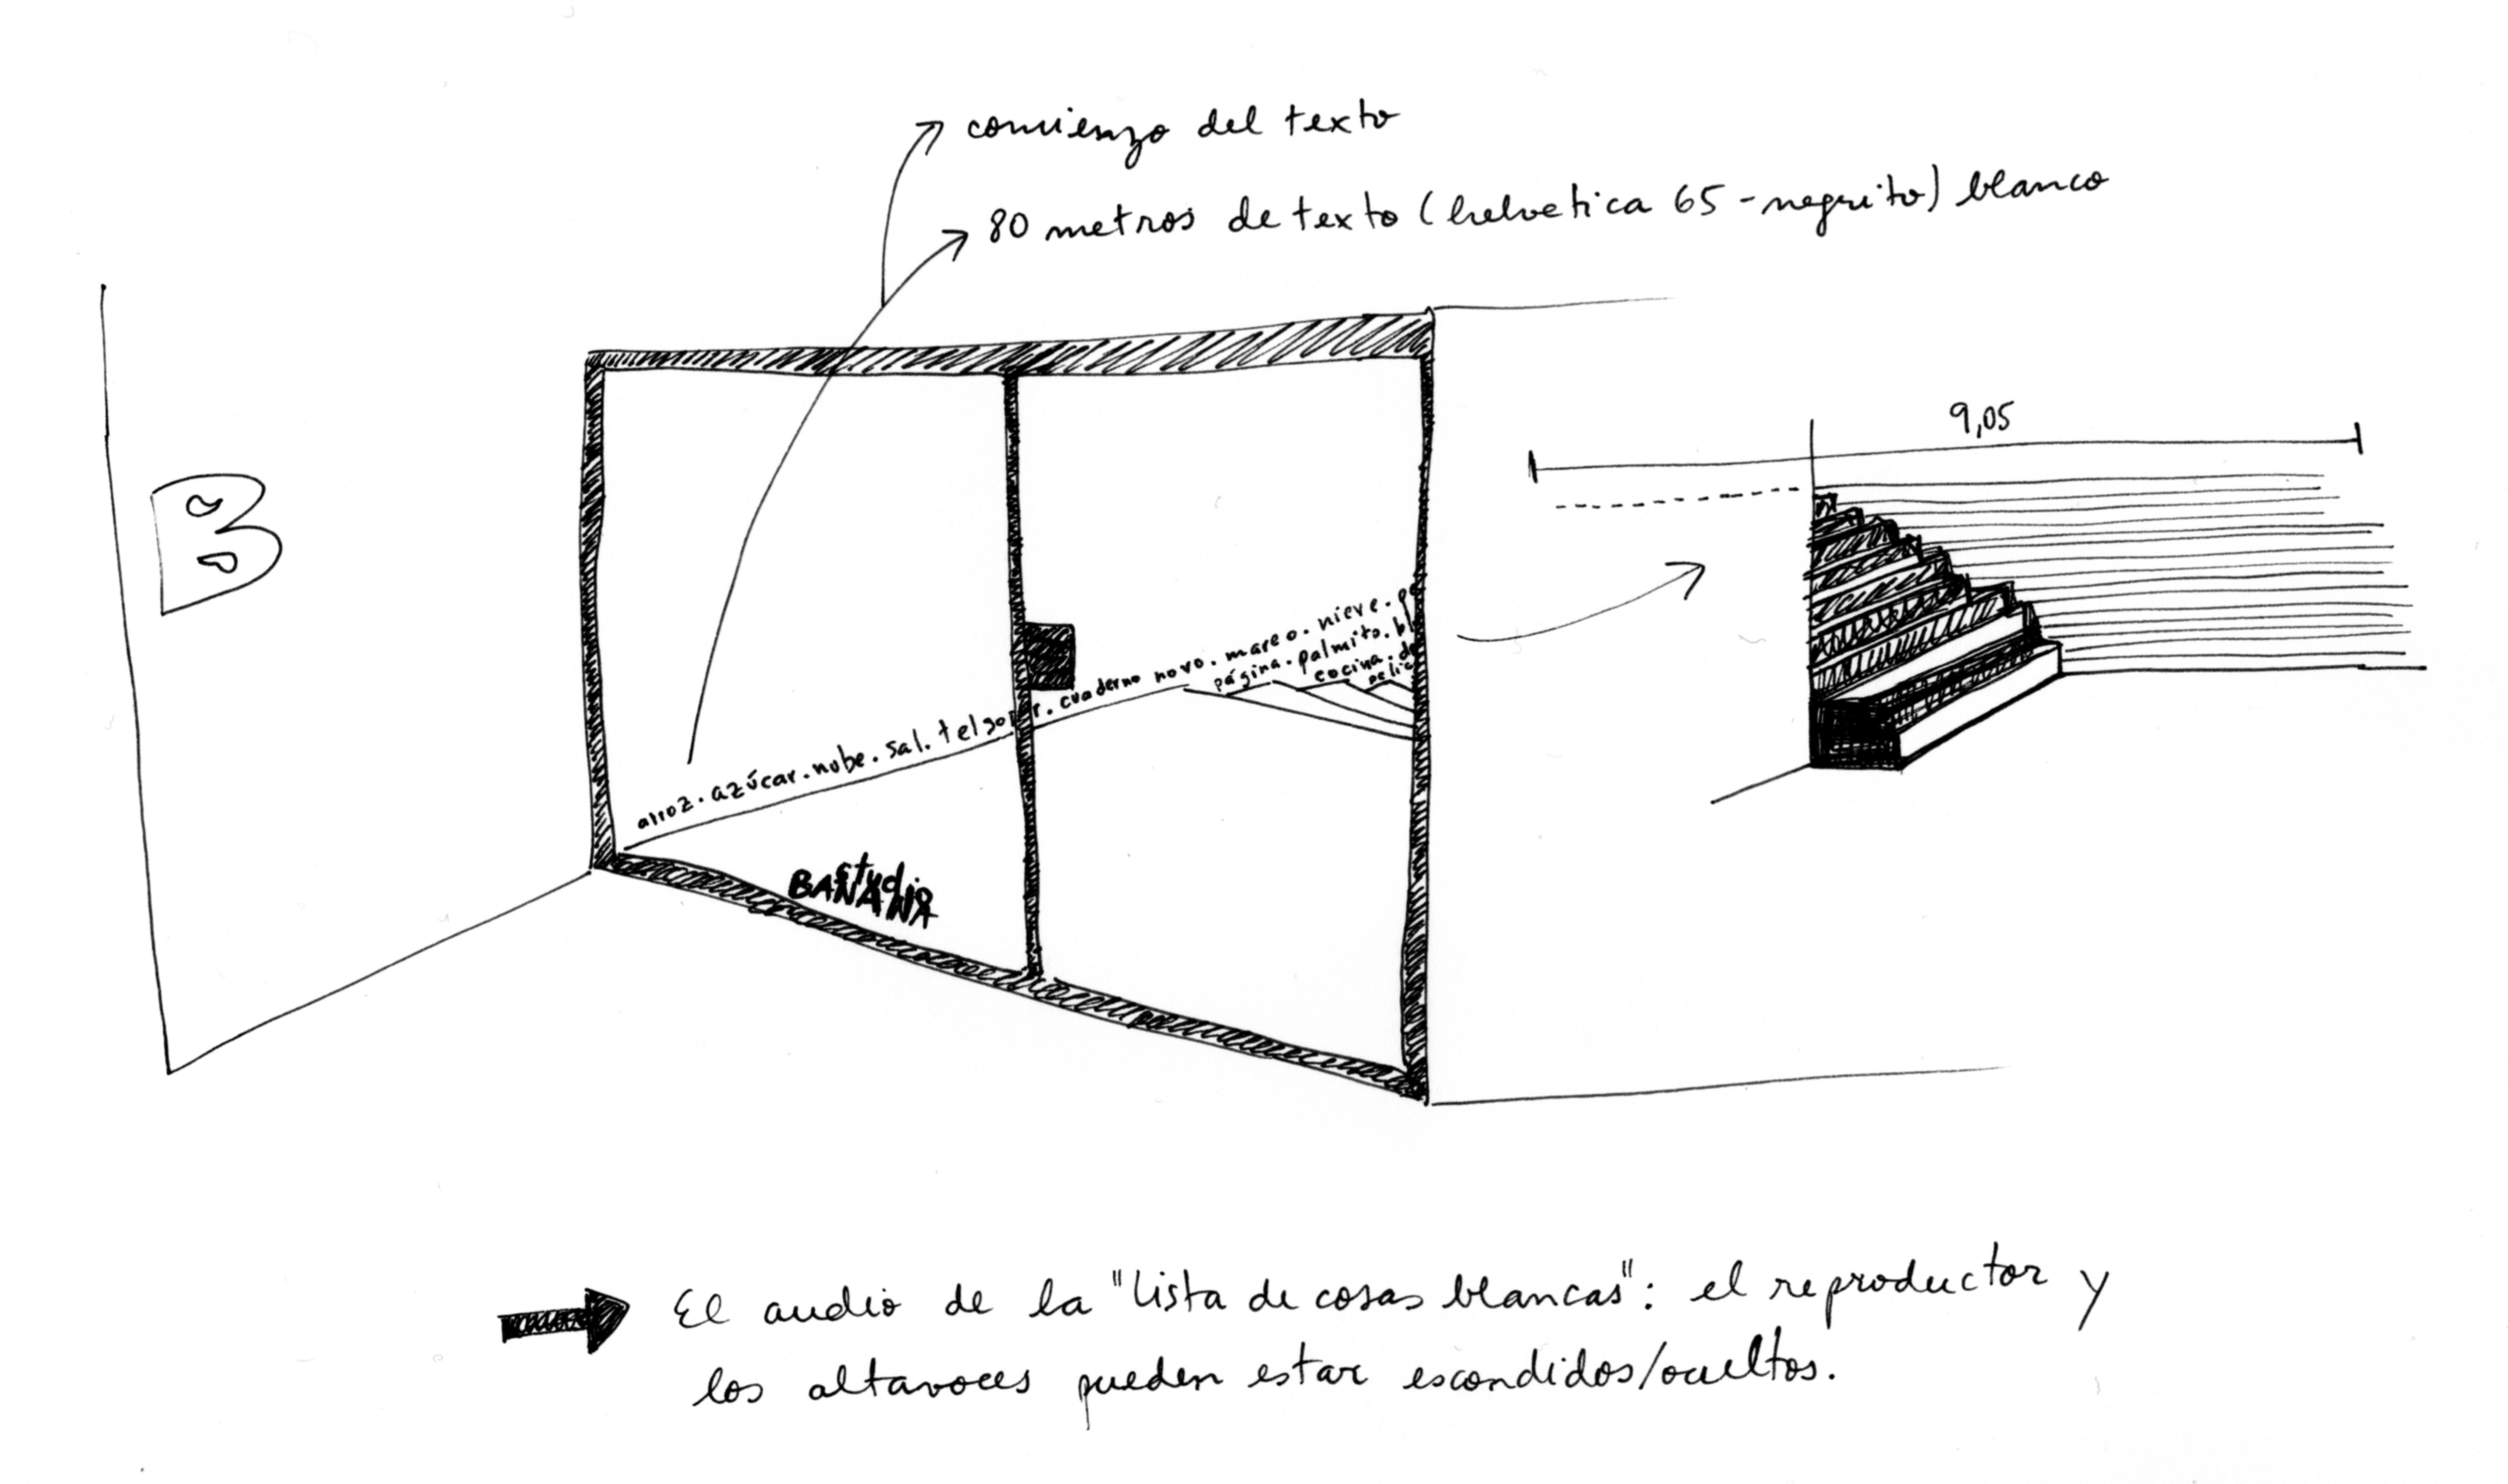 comienzo del texto
80 metros de texto (helvetica 65 - negrito) blanco
9,05
B
arroz. azúcar. nube. sal. telgopor. cuaderno novo. mareo. nieve. pe
página. palmito. bl
cocina. de
pelic
studio
BANANA
El audio de la "lista de cosas blancas": el reproductor y
los altavoces pueden estar escondidos/ocultos.